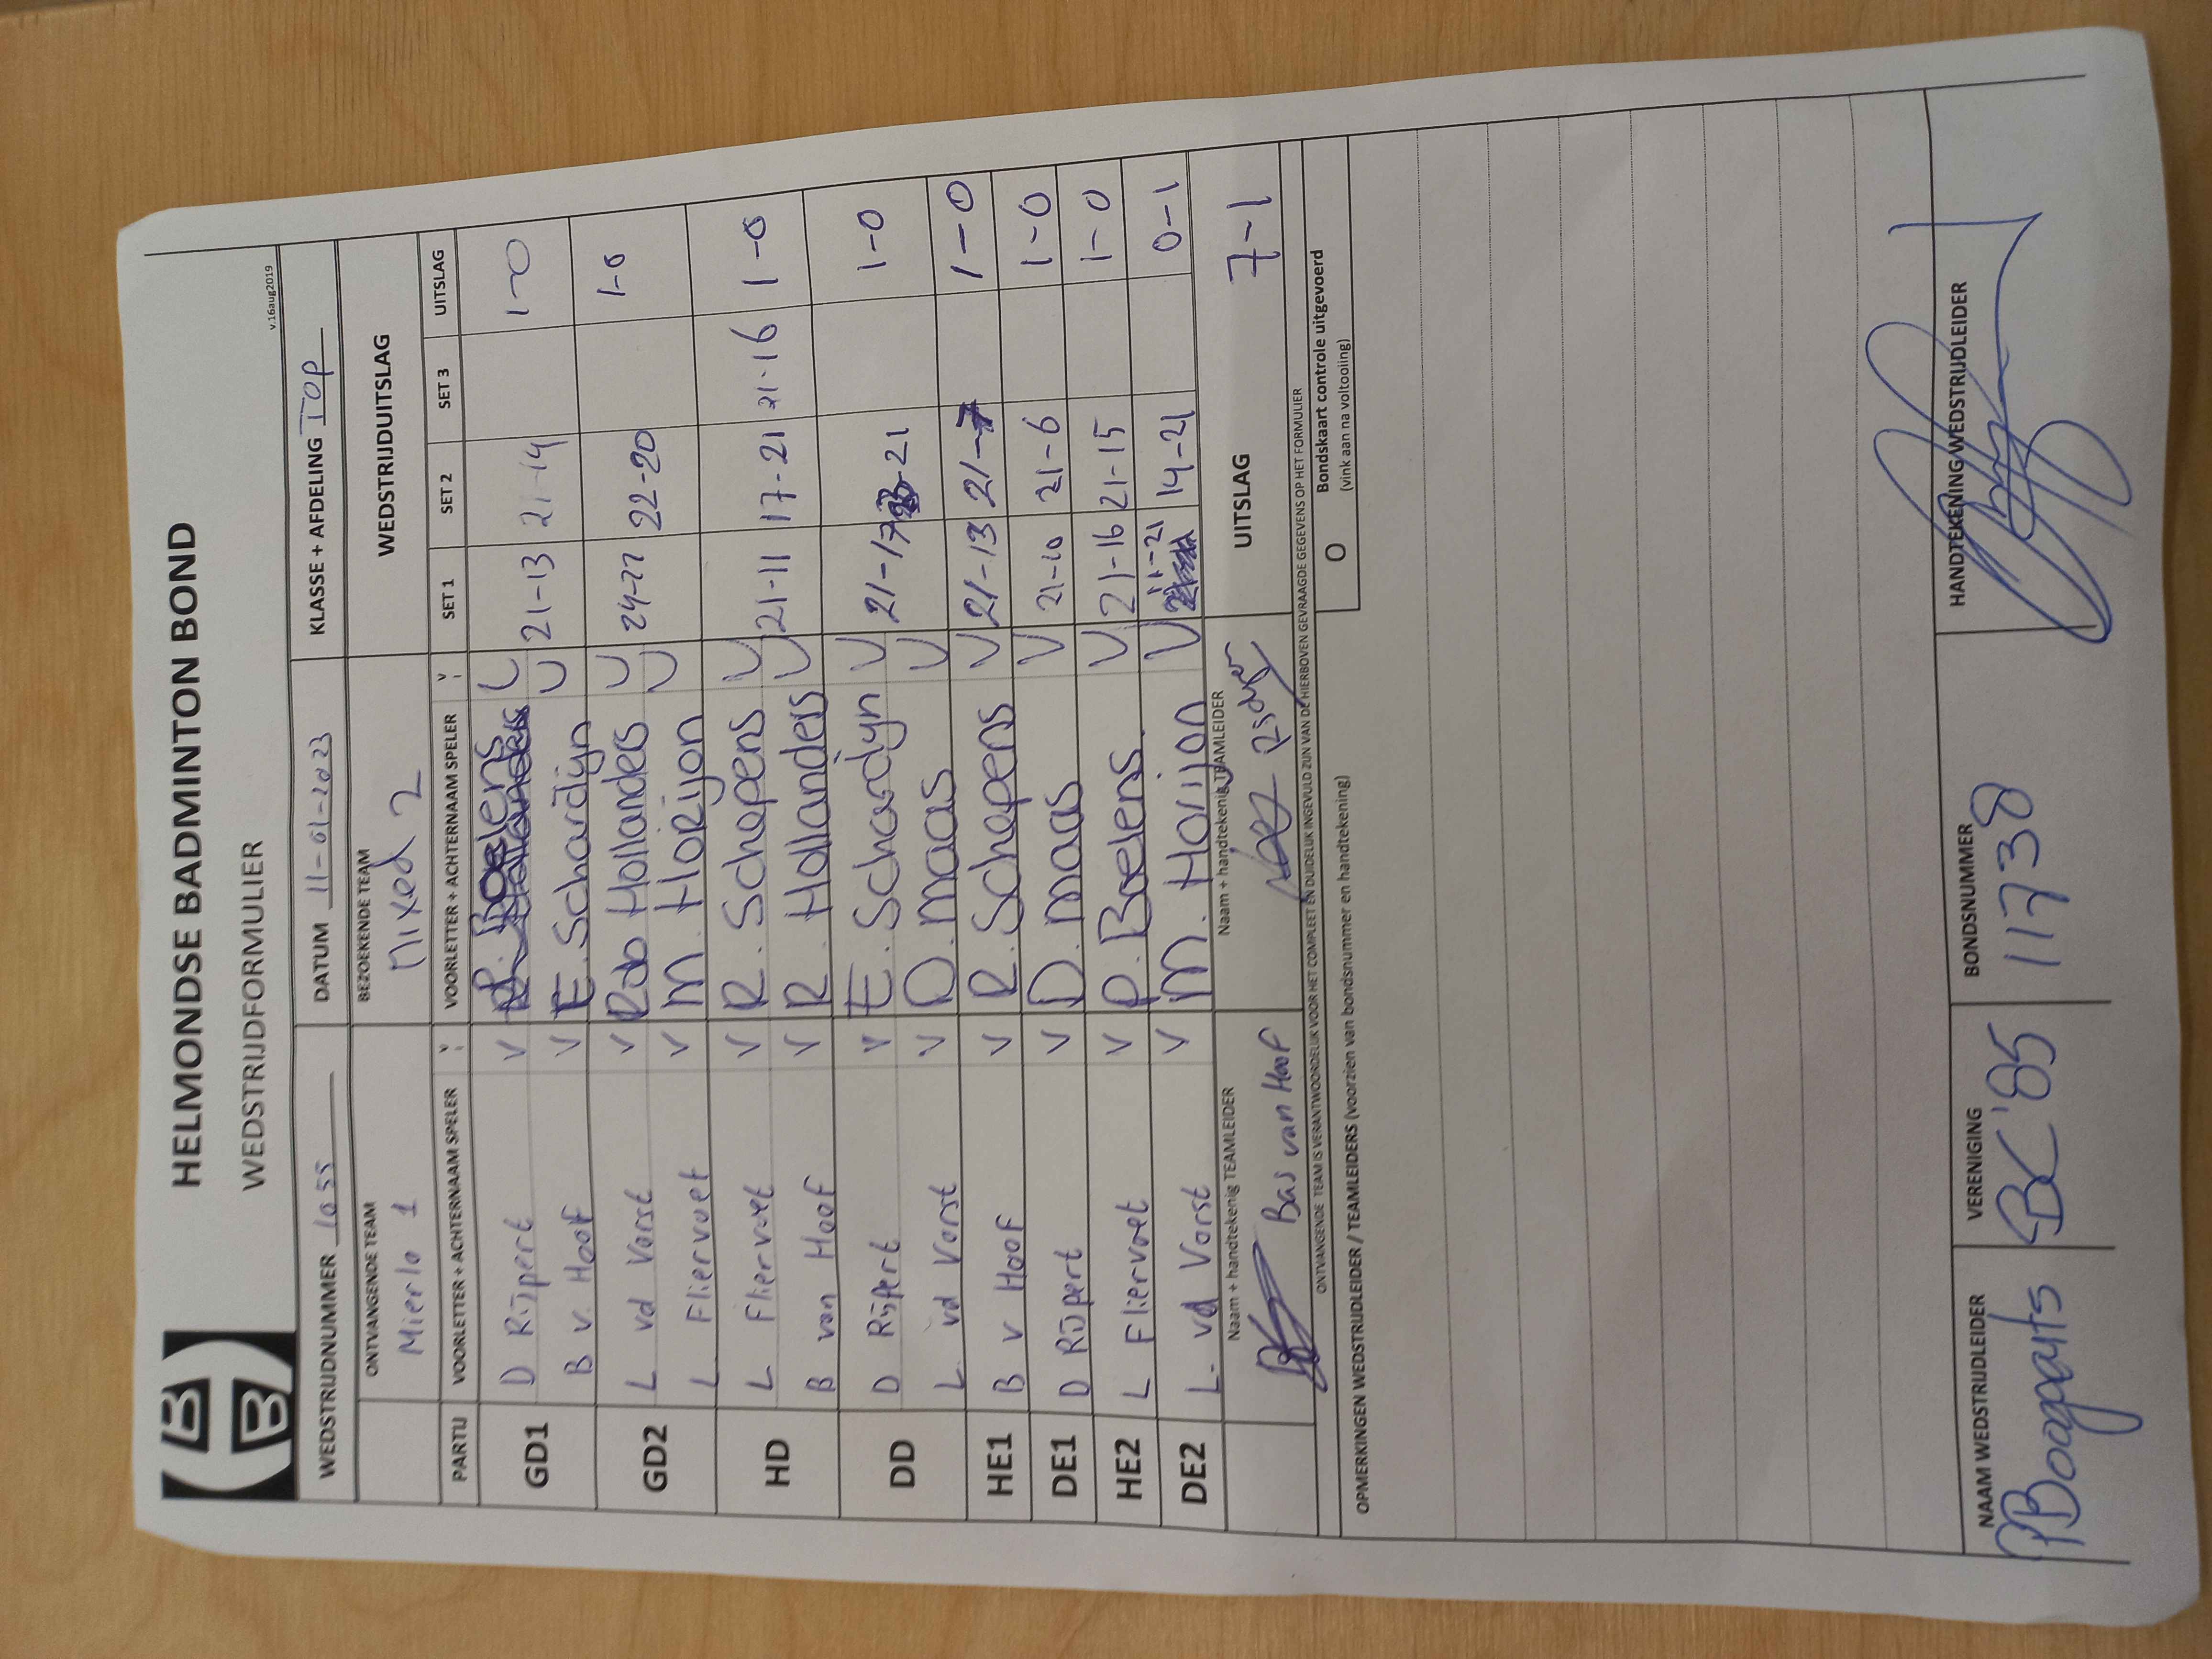 HELMONDSE BADMINTON BOND
WEDSTRIJDFORMULIER
v.16aug2019
WEDSTRIJDNUMMER 1055 DATUM 11-01-2023 KLASSE + AFDELING TOP
ONTVANGENDE TEAM BEZOEKENDE TEAM WEDSTRIJDUITSLAG
Mierlo 1 Mixed 2
PARTIJ VOORLETTER + ACHTERNAAM SPELER V VOORLETTER + ACHTERNAAM SPELER V SET 1 SET 2 SET 3 UITSLAG
GD1 D Rijpert V Boelens V 21-13 21-14 1-0
B v. Hoof V E. Schardijn V
GD2 L vd Vorst V Rob Hollanders V 24-22 22-20 1-0
L Fliervoet V M. Horijon V
HD L Fliervoet V R. Schepens V 21-11 17-21 21-16 1-0
B van Hoof V R. Hollanders V
DD D Rijpert V E. Schardijn V 21-17 23-21 1-0
L vd Vorst V D. Maas V
HE1 B v Hoof V R. Schepens V 21-13 21-7 1-0
DE1 D Rijpert V D. Maas V 21-10 21-6 1-0
HE2 L Fliervoet V P. Boelens. V 21-16 21-15 1-0
DE2 L. vd Vorst V M. Horijon V 11-21 14-21 0-1
Naam + handtekenig TEAMLEIDER Naam + handtekenig TEAMLEIDER UITSLAG 7-1
Bas van Hoof
ONTVANGENDE TEAM IS VERANTWOORDELIJK VOOR HET COMPLEET EN DUIDELIJK INGEVULD ZIJN VAN DE HIERBOVEN GEVRAAGDE GEGEVENS OP HET FORMULIER
OPMERKINGEN WEDSTRIJDLEIDER / TEAMLEIDERS (voorzien van bondsnummer en handtekening)
O Bondskaart controle uitgevoerd
(vink aan na voltooiing)
NAAM WEDSTRIJDLEIDER VERENIGING BONDSNUMMER HANDTEKENING WEDSTRIJDLEIDER
P Boogaarts BC'85 11738